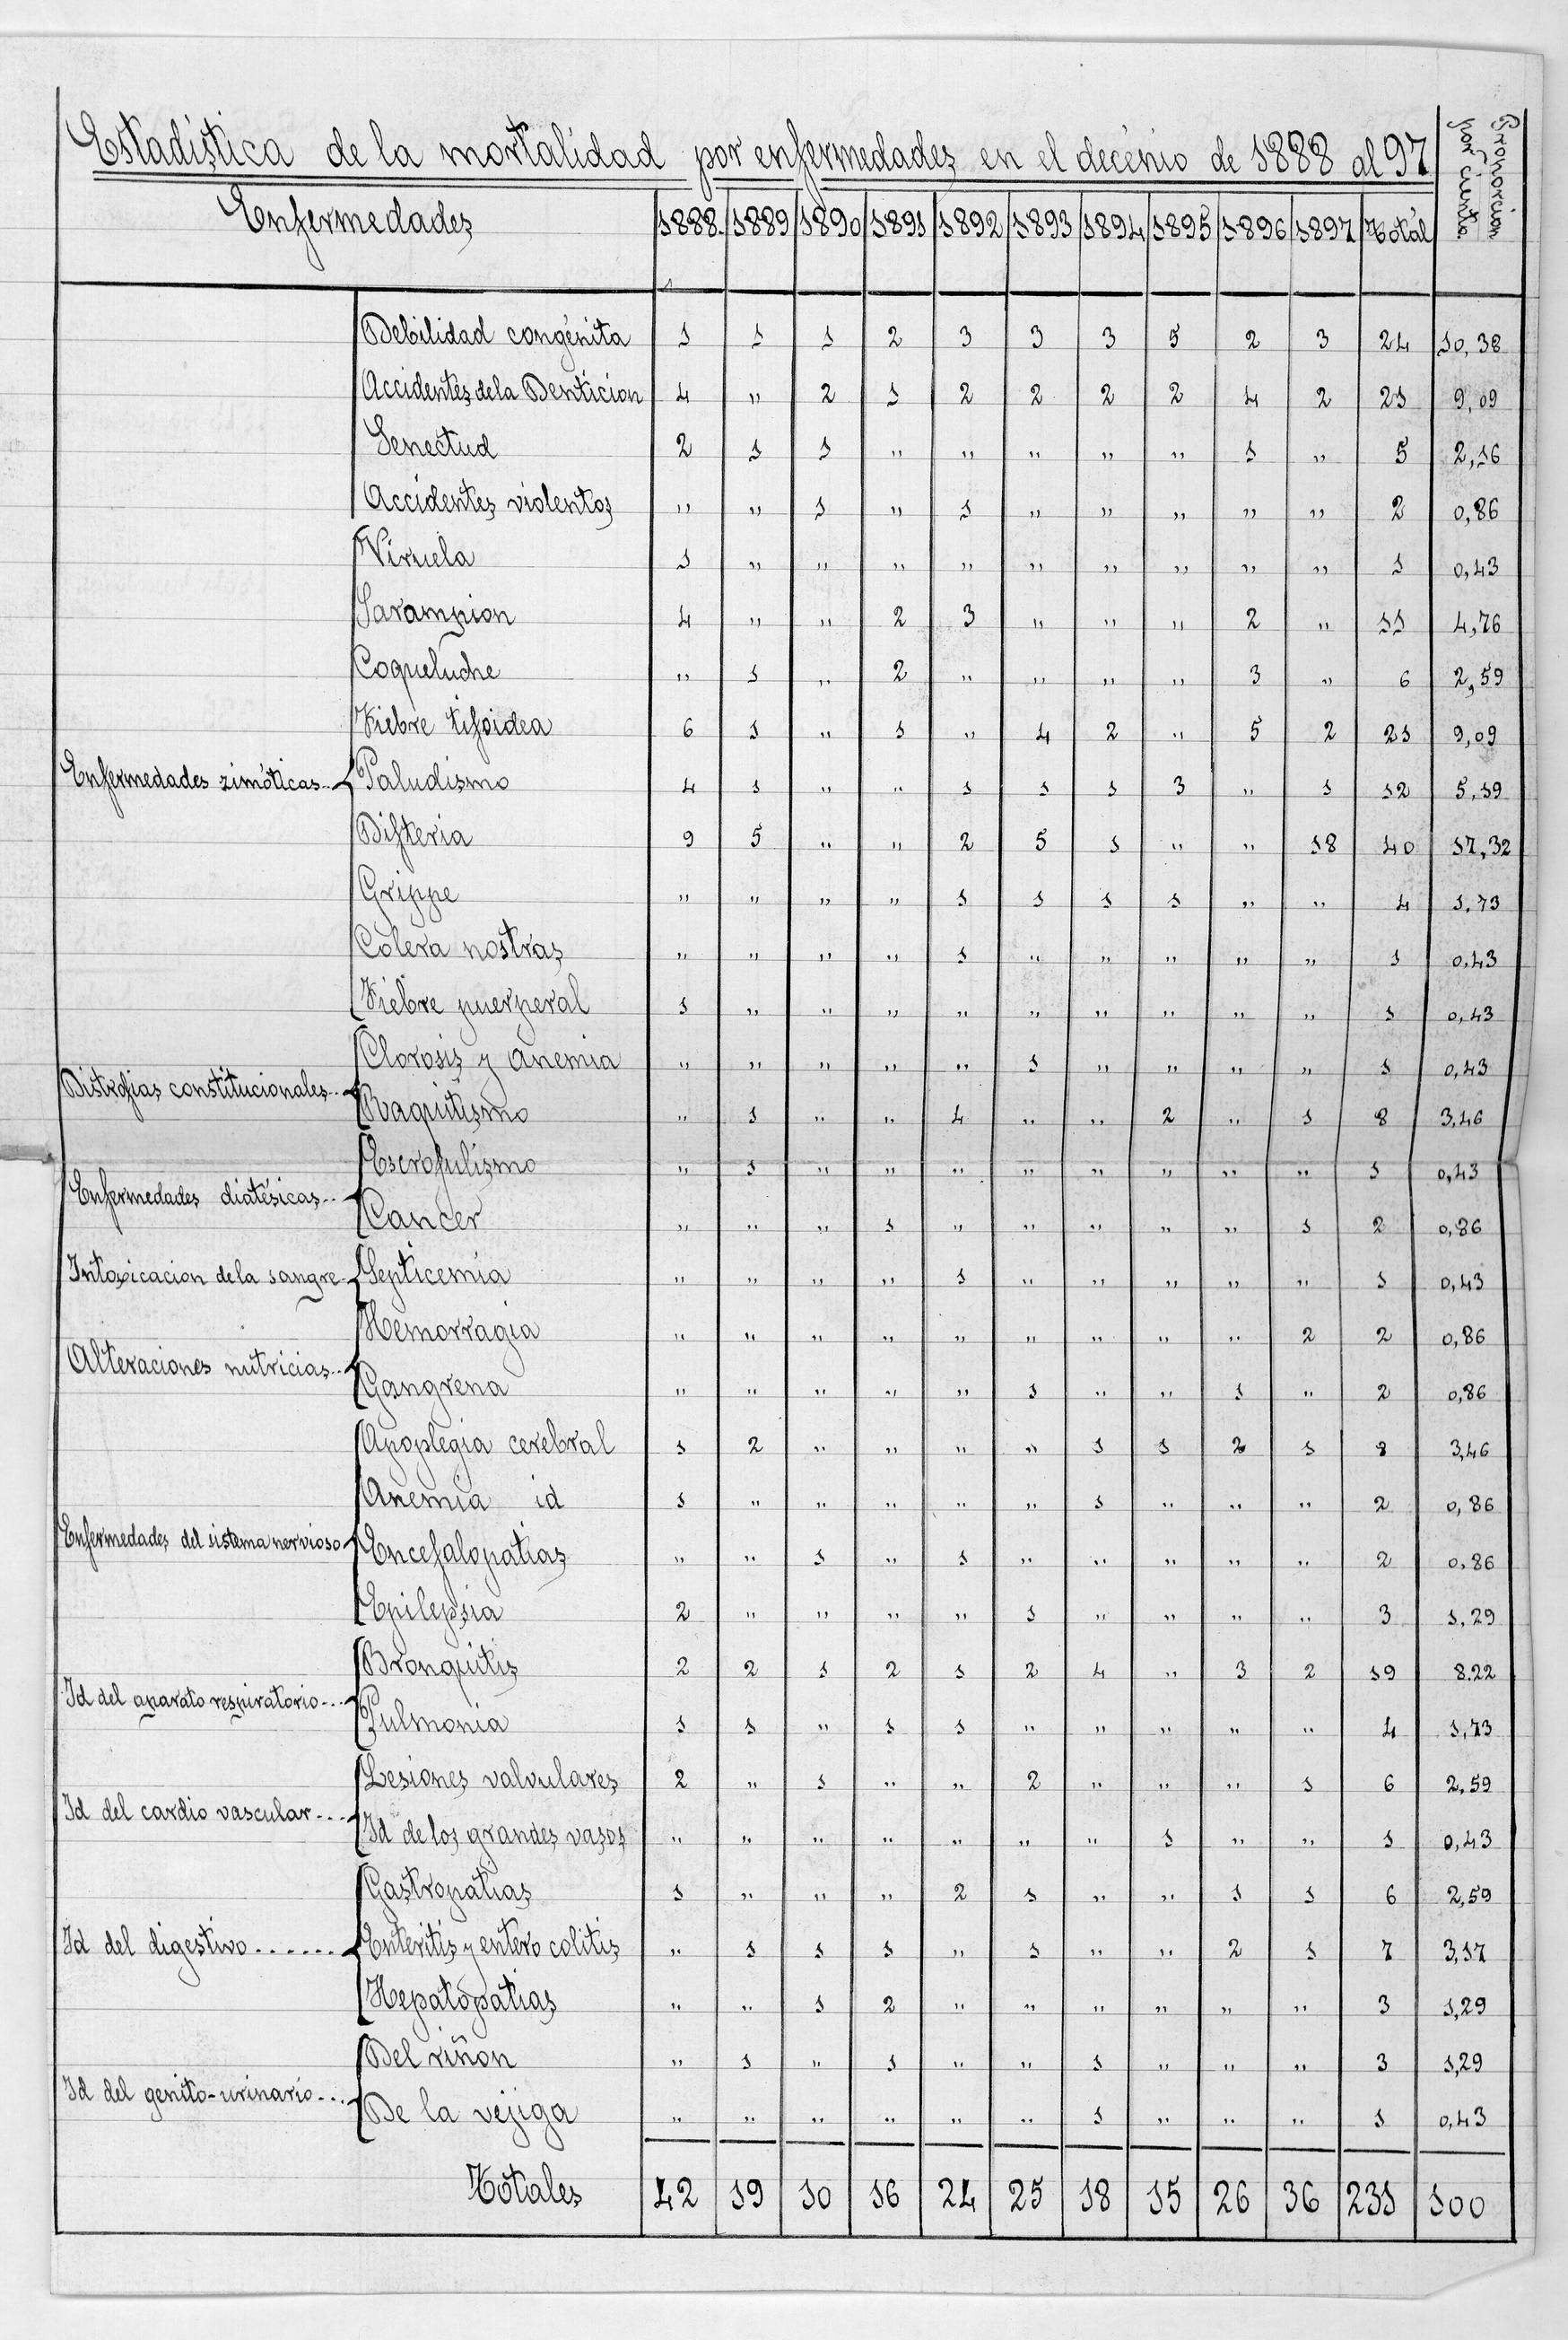 Estadística de la mortalidad por enfermedades en el decénio de 1888 al 97
Proporcion por ciento
Enfermedades 1888. 1889 1890 1891 1892 1893 1894 1895 1896 1897 Total
Debilidad congénita 1 1 1 2 3 3 3 5 2 3 24 10,38
Accidentes de la Denticion 4 " 2 1 2 2 2 2 4 2 21 9,09
Senectud 2 1 1 " " " " " 1 " 5 2,16
Accidentes violentos " " 1 " 1 " " " " " 2 0,86
Viruela 1 " " " " " " " " " 1 0,43
Sarampion 4 " " 2 3 " " " 2 " 11 4,76
Coqueluche " 1 " 2 " " " " 3 " 6 2,59
Fiebre tifoidea 6 1 " 1 " 4 2 " 5 2 21 9,09
Enfermedades zimóticas.. Paludismo 4 1 " " 1 1 1 3 " 1 12 5,19
Difteria 9 5 " " 2 5 1 " " 18 40 17,32
Grippe " " " " 1 1 1 1 " " 4 1,73
Colera nostras " " " " 1 " " " " " 1 0,43
Fiebre puerperal 1 " " " " " " " " " 1 0,43
Clorosis y anemia " " " " " 1 " " " " 1 0,43
Distrofias constitucionales..
Raquitismo " 1 " " 4 " " 2 " 1 8 3,46
Escrofulismo " 1 " " " " " " " " 1 0,43
Enfermedades diatésicas..
Cancer " " " 1 " " " " " 1 2 0,86
Intoxicacion de la sangre. Septicemia " " " " 1 " " " " " 1 0,43
Hemorragia " " " " " " " " " 2 2 0,86
Alteraciones nutricias..
Gangrena " " " " " 1 " " 1 " 2 0,86
Apoplegia cerebral 1 2 " " " " 1 1 2 1 8 3,46
Anemia id 1 " " " " " 1 " " " 2 0,86
Enfermedades del sistema nervioso Encefalopatias " " 1 " 1 " " " " " 2 0,86
Epilepsia 2 " " " " 1 " " " " 3 1,29
Bronquitis 2 2 1 2 1 2 4 " 3 2 19 8.22
Id del aparato respiratorio...
Pulmonia 1 1 " 1 1 " " " " " 4 1,73
Lesiones valvulares 2 " 1 " " 2 " " " 1 6 2,59
Id del cardio vascular...
Id de los grandes vasos " " " " " " " 1 " " 1 0,43
Gastropatias 1 " " " 2 1 " " 1 1 6 2,59
Id del digestivo...... Enteritis y entero colitis " 1 1 1 " 1 " " 2 1 7 3,17
Hepatopatias " " 1 2 " " " " " " 3 1,29
Del riñon " 1 " 1 " " 1 " " " 3 1,29
Id del genito-urinario...
De la vejiga " " " " " " 1 " " " 1 0,43
Totales 42 19 10 16 24 25 18 15 26 36 231 100